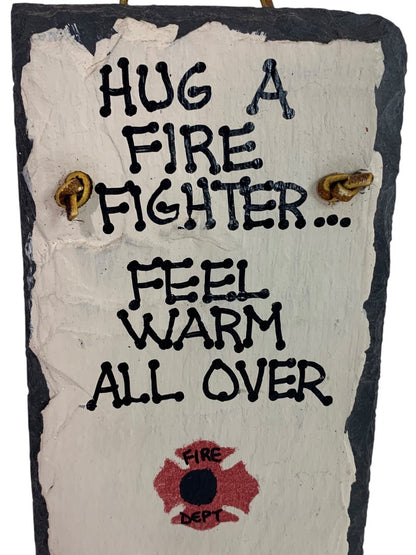 HUG A
FIRE
FIGHTER...
FEEL
WARM
ALL OVER
FIRE
DEPT